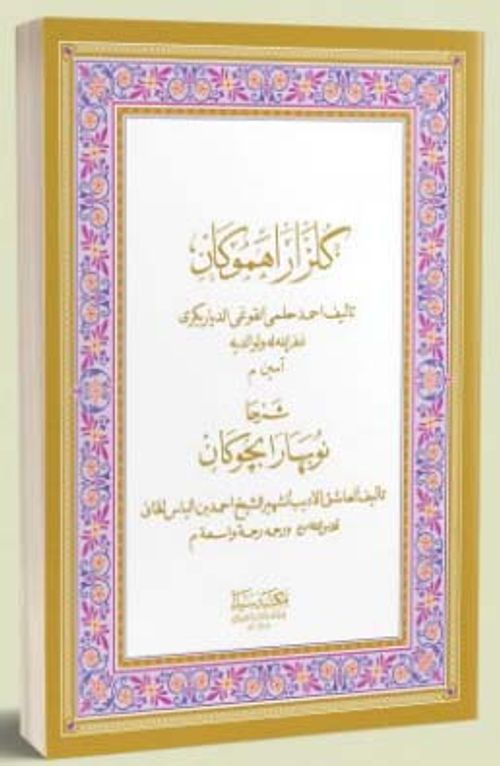 گلزارا هموكان
تأليف احمد حلمى القوغى الديار بكرى
غفر الله له ولوالديه
آمين م
شرحا
نوبهارا بچوكان
تأليف العاشق الاديب الشهير الشيخ احمد بن الياس الخانى
ورحمه رحمة واسعة م
مكتبة سيدا